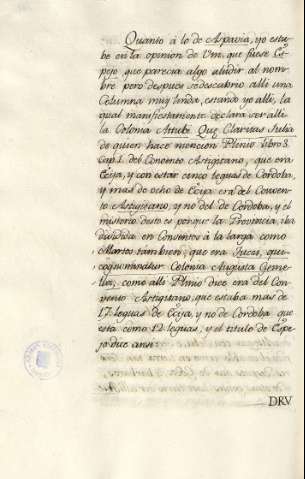 Quanto à lo de Aspavia, yo estu-
be en la opinion de Vm. que fuese Es-
pejo, que parecia algo aludir al nom-
bre pero despues se descubrio alli una
Columna muy linda, estando yo alli, la
qual manifiestamente declara ser alli
la Colonia Attubi. Que Claritas Julia
de quien hace mencion Plinio libro 3.
Cap. 1. del Convento Astigitano, que era
Ecija, y con estar cinco leguas de Cordoba,
y mas de ocho de Ecija era del Conven-
to Astigitano, y no del de Cordoba, y el
misterio deste es porque la Provincia, iba
dividida en Conventos à la larga como
Martos tambien, que era Tucci, que
cognominatur Colonia Augusta Geme-
lla, como alli Plinio dice era del Con-
vento Astigitano, que estaba mas de
17 leguas de Ecija, y no de Cordoba que
esta como 12 leguas, y el titulo de Espe-
jo dice ansi
DRV